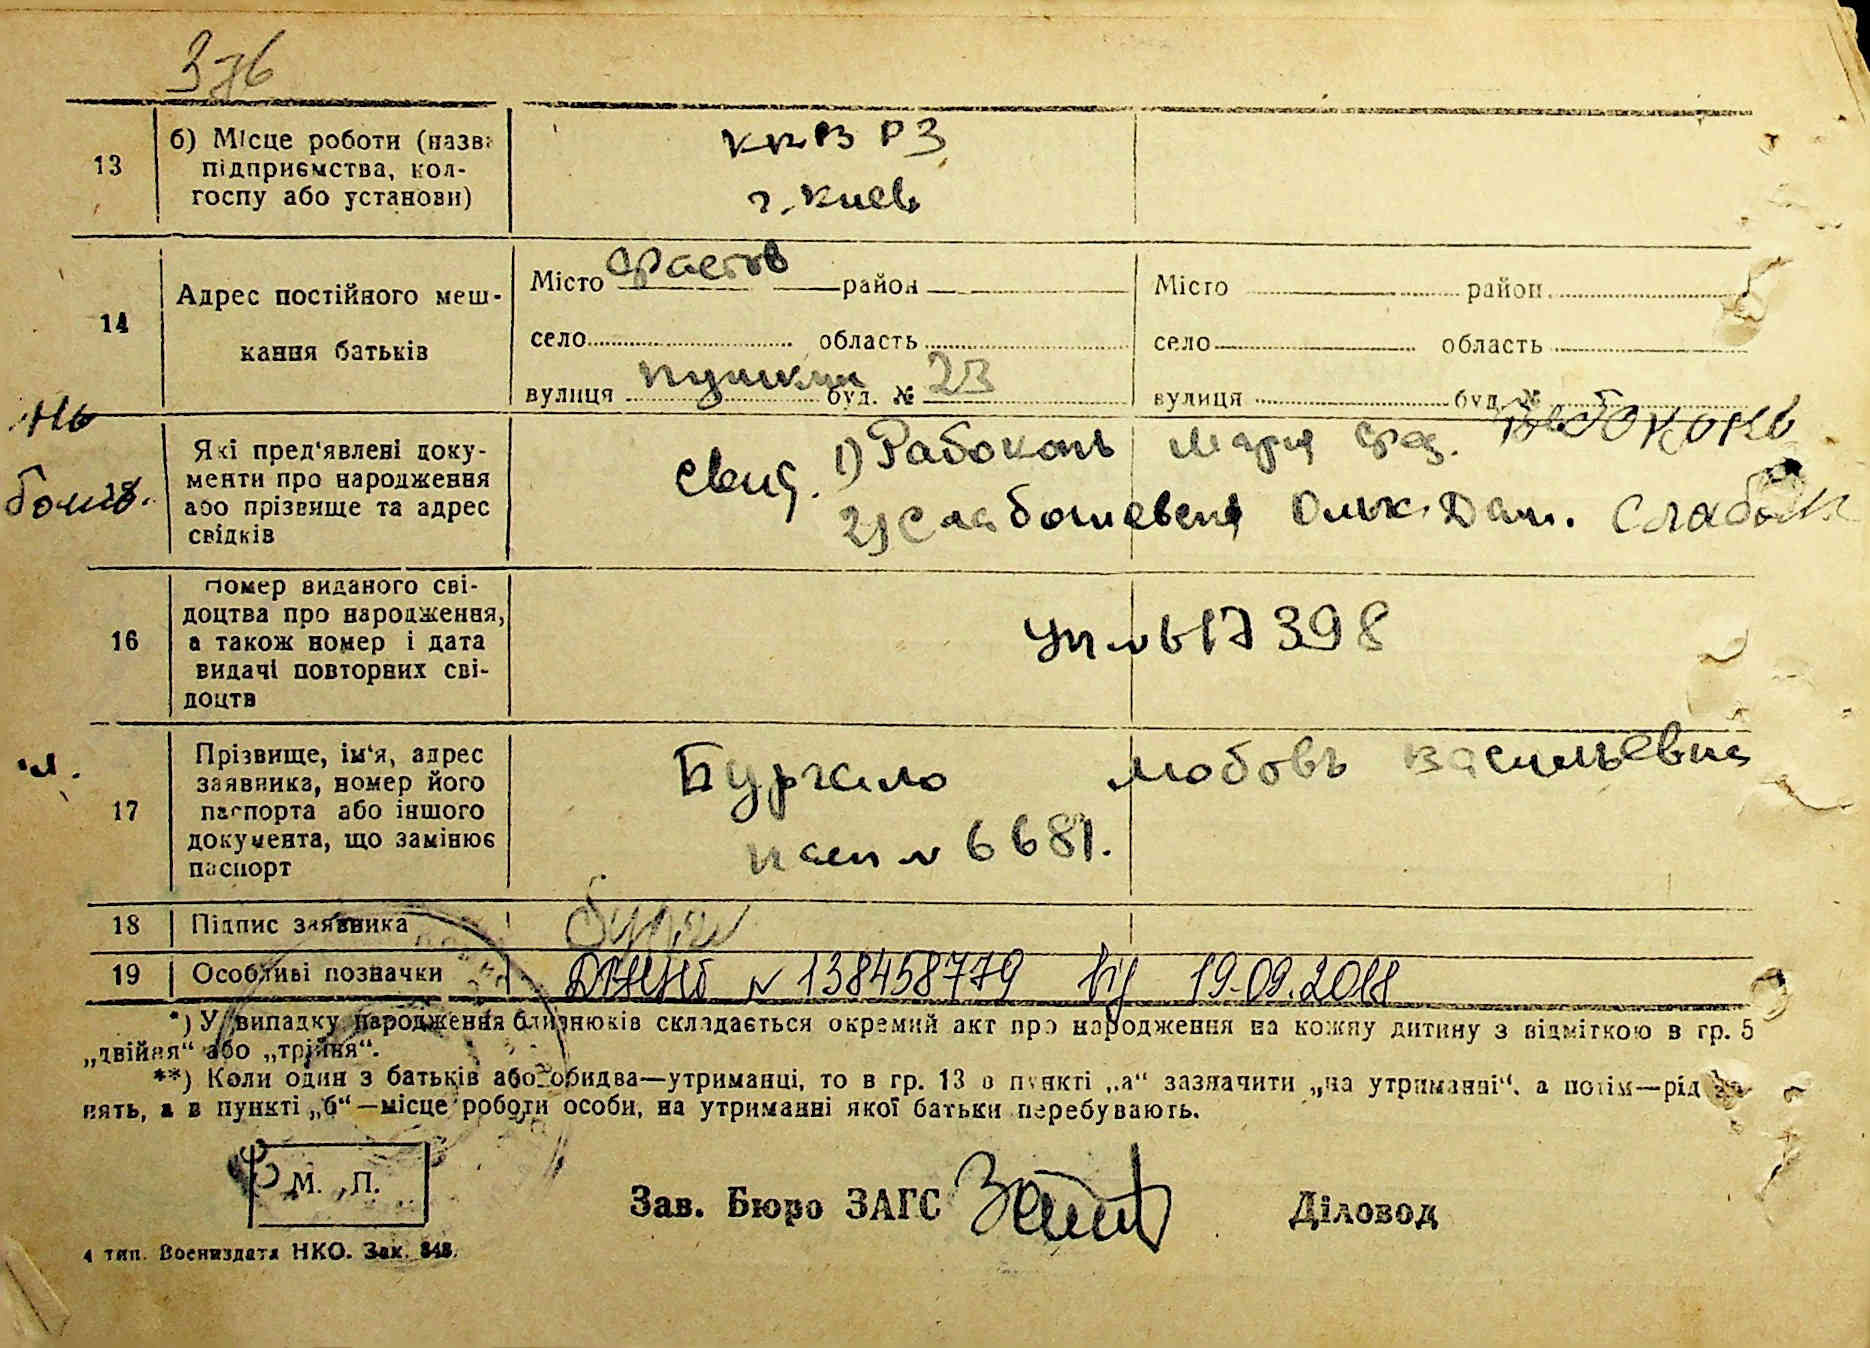 376
13
б) Місце роботи (назва
підприємства, кол-
госпу або установи)
КПВРЗ
г. Киев
14
Адрес постійного меш-
кання батьків
Місто Фастов район
село область
вулиця Пушкин буд. № 23
Місто район
село область
вулиця буд. №
15
Які пред'явлені доку-
менти про народження
або прізвище та адрес
свідків
свид. 1) Рабоконь Мария
2) Слабошевская Дан.
16
Номер виданого сві-
доцтва про народження,
а також номер і дата
видачі повторних сві-
доцтв
№ 17398
17
Прізвище, ім'я, адрес
заявника, номер його
паспорта або іншого
документа, що замінює
паспорт
Любовь Васильевна
пасп № 6681.
18 Підпис заявника
19 Особливі позначки
№ 138458779 від 19.09.2018
*) У випадку народження близнюків складається окремий акт про народження на кожну дитину з відміткою в гр. 5
„двійня“ або „трійня“.
**) Коли один з батьків або обидва—утриманці, то в гр. 13 в пункті „а“ зазначити „на утриманні“, а потім—рід за-
нять, а в пункті „б“—місце роботи особи, на утриманні якої батьки перебувають.
М. П.
Зав. Бюро ЗАГС
Діловод
4 тип. Воениздата НКО. Зак. 848.